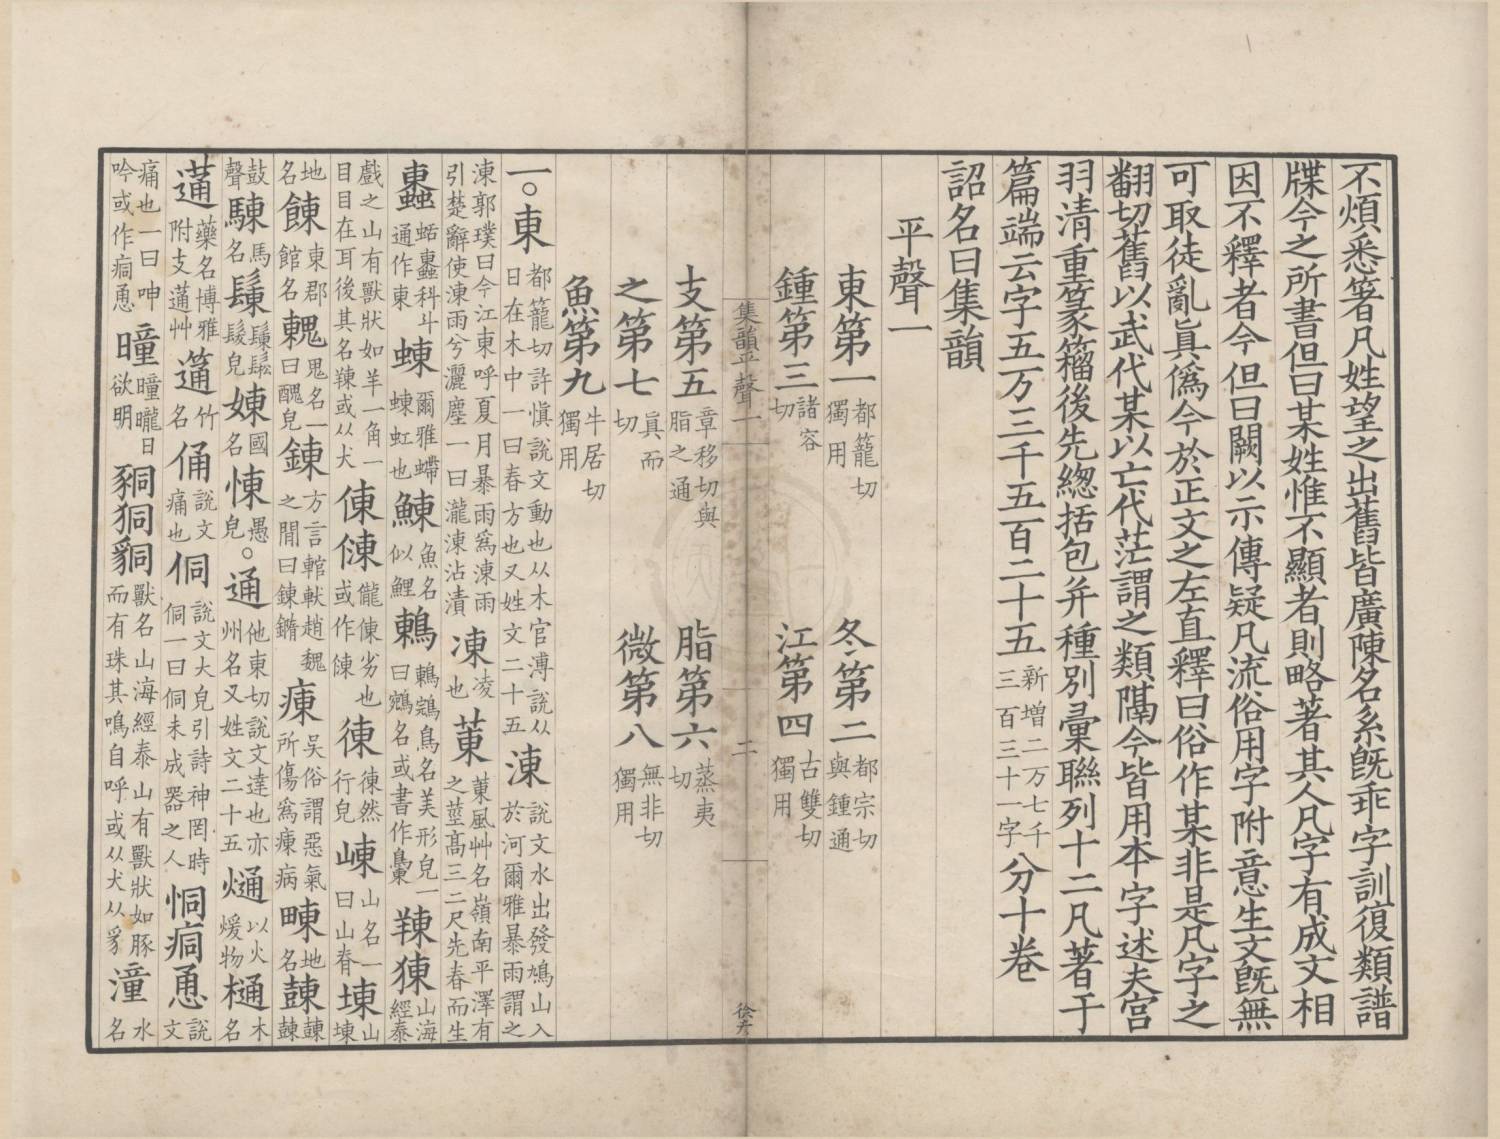 不煩悉箸凡姓望之出舊皆廣陳名系旣乖字訓復類譜
牒今之所書但曰某姓惟不顯者則略著其人凡字有成文相
因不釋者今但曰闕以示傳疑凡流俗用字附意生文旣無
可取徒亂眞僞今於正文之左直釋曰俗作某非是凡字之
翻切舊以武代某以亡代茫謂之類隔今皆用本字述夫宮
羽清重篆籀後先總括包幷種別彙聯列十二凡著于
篇端云字五万三千五百二十五新增二万七千三百三十一字分十卷
詔名曰集韻
平聲一
東第一都籠切獨用 冬第二都宗切與鍾通
鍾第三諸容切 江第四古雙切獨用
集韻平聲一 二 徐芳
支第五章移切與脂之通 脂第六蒸夷切
之第七眞而切 微第八無非切獨用
魚第九牛居切獨用
一○東都籠切許愼說文動也从木官溥說从日在木中一曰春方也又姓文二十五涷說文水出發鳩山入於河爾雅暴雨謂之
涷郭璞曰今江東呼夏月暴雨爲涷雨引楚辭使涷雨兮灑塵一曰瀧涷沾漬凍凌也菄菄風艸名嶺南平澤有之莖高三二尺先春而生
蝀蛞蝀科斗通作東蝀爾雅螮蝀虹也鯟魚名似鯉鶇鶇鵍鳥名美形皃一曰鵷名或書作䳉䍶𤟵山海經泰
戲之山有獸狀如羊一角一目目在耳後其名䍶或从犬倲𩜍儱倲劣也或作𩜍徚徚然行皃崠山名一曰山脊埬山埬
地名餗東郡館名𩳣鬼名一曰醜皃錬方言輨軑趙魏之閒曰錬鐕㾖吳俗謂惡氣所傷爲㾖病䰤地名㼯㼯
鼓聲駷馬名鬉鬉鬆髮皃娻國名㥏愚皃○通他東切說文達也亦州名又姓文二十五熥以火煖物樋木名
蓪藥名博雅附支蓪艸𥲆竹名俑說文痛也侗說文大皃引詩神罔時侗一曰侗未成器之人恫痌恿說文
痛也一曰呻吟或作痌恿曈曈曨日欲明𧱁狪𧳆獸名山海經泰山有獸狀如豚而有珠其鳴自呼或从犬从豸潼水名